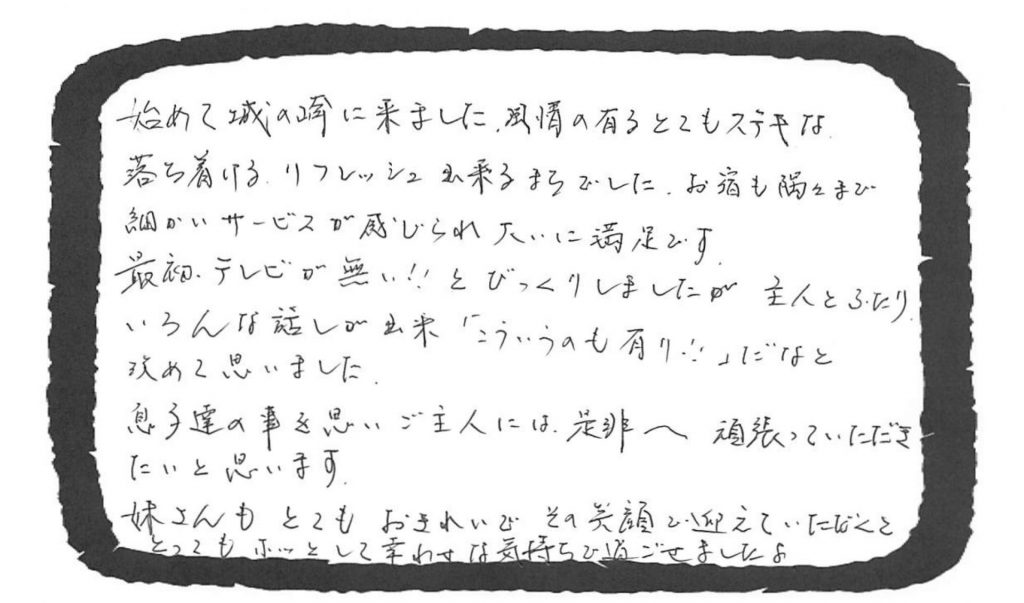 始めて城の崎に来ました、風情の有るとてもステキな、
落ち着ける、リフレッシュ出来るまちでした、お宿も隅々まで
細かいサービスが感じられ大いに満足です。
最初、テレビが無い!!とびっくりしましたが 主人とふたり、
いろんな話しが出来「こういうのも有り!!」だなと
改めて思いました。
息子達の事を思いご主人には、是非 頑張っていただき
たいと思います。
妹さんも とても おきれいで その笑顔で迎えていただくと
とってもホッとして幸わせな気持ちで過ごせましたよ